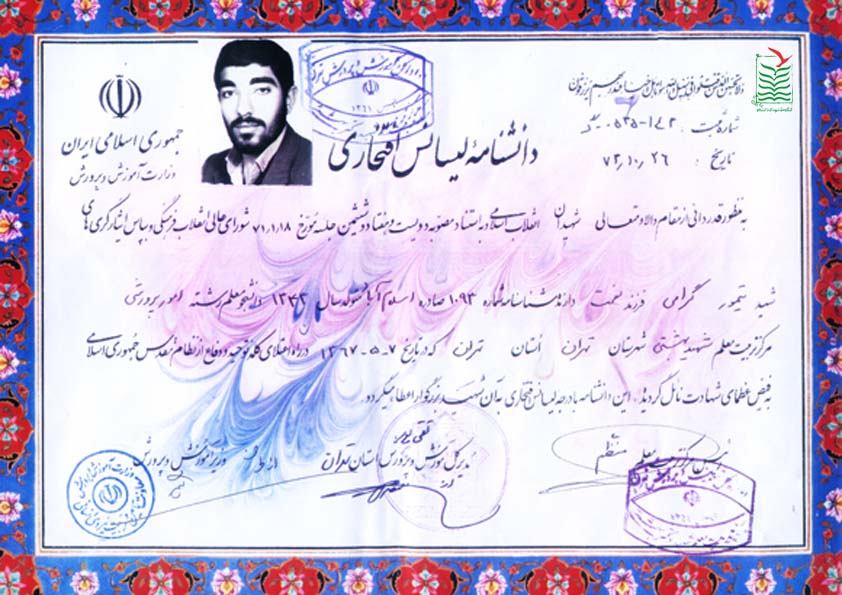 ولا تحسبن الذین قتلوا فی سبیل الله امواتا بل احیاء عند ربهم یرزقون
شماره ثبت: ۵۳۵-۱۴۲
تاریخ: ۷۳،۱۰،۲۶
جمهوری اسلامی ایران
وزارت آموزش و پرورش
دانشنامهٔ لیسانس افتخاری
به منظور قدردانی از مقام والا و متعالی شهیدان انقلاب اسلامی و به استناد مصوبه دویست و هفتاد و ششمین جلسه مورخ ۷۱،۱،۱۸ شورای عالی انقلاب فرهنگی و بپاس ایثارگری های
شهید تیمور گرامی فرزند نعمت دارنده شناسنامه شماره ۱۰۹۳ صادره اسلام آباد متولد سال ۱۳۴۲ دانشجو معلم رشته امور پرورشی
مرکز تربیت معلم شهید بهشتی شهرستان تهران استان تهران که در تاریخ ۷-۵-۱۳۶۷ در راه اعتلای کلمه توحید و دفاع از نظام مقدس جمهوری اسلامی
به فیض عظمای شهادت نائل گردیده، این دانشنامه با درجه لیسانس افتخاری به آن شهید بزرگوار اعطا میگردد.
رئیس مرکز تربیت معلم
مدیرکل آموزش و پرورش استان تهران
وزیر آموزش و پرورش